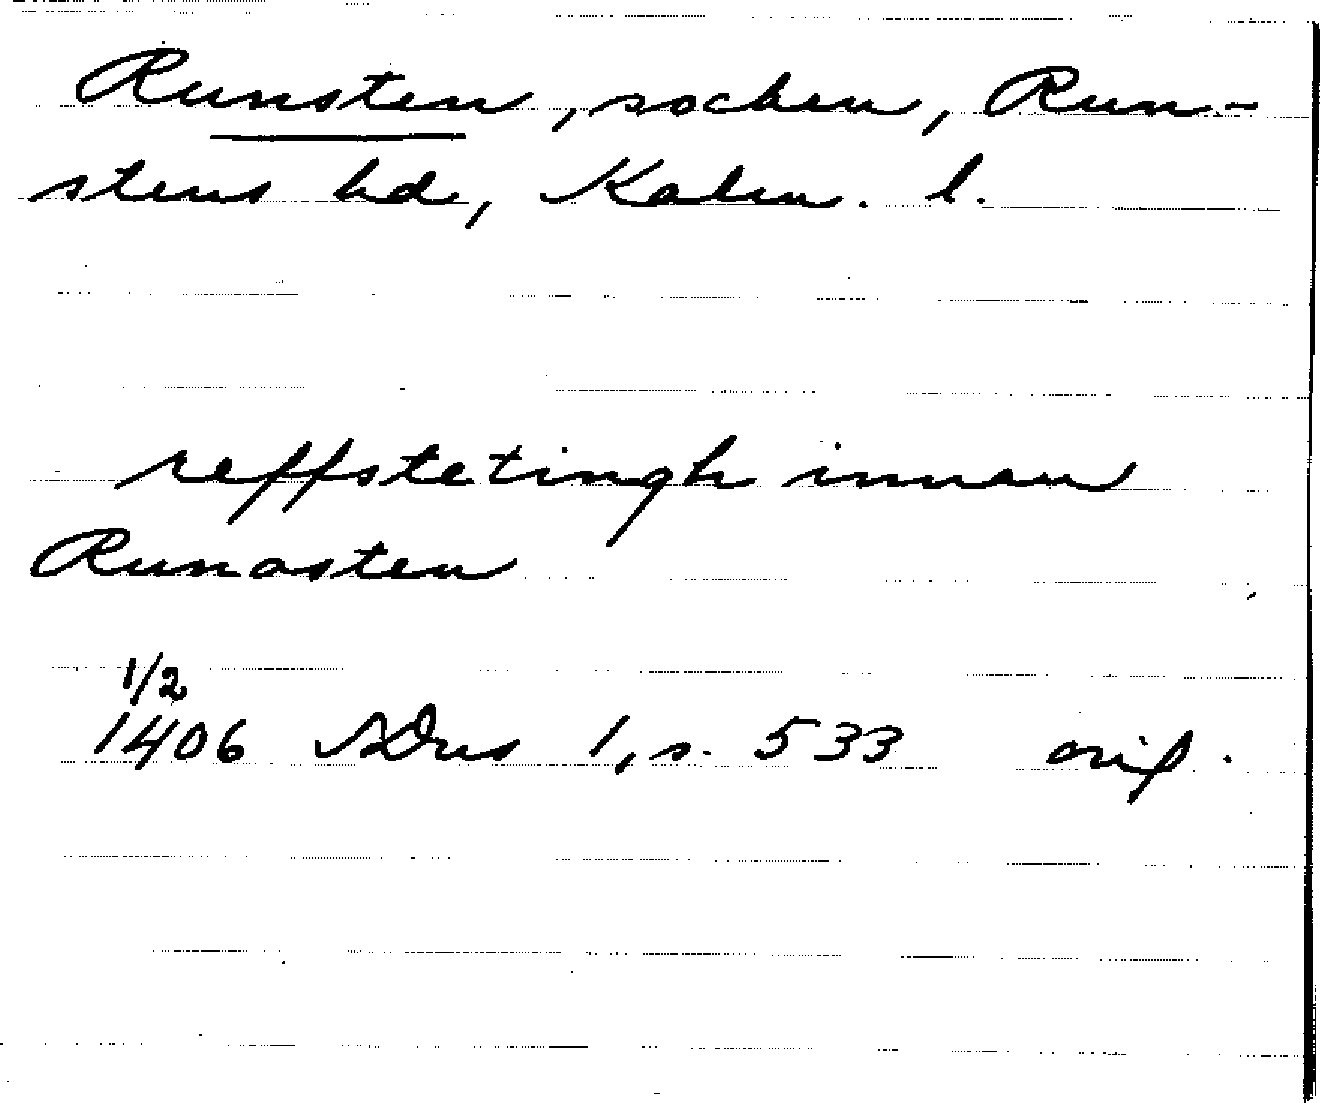 Runsten, socken, Run-
stens hd, Kalm. l.
reffstetingh innan
Runasten
1/2
1406 SDns 1, s. 533 orig.